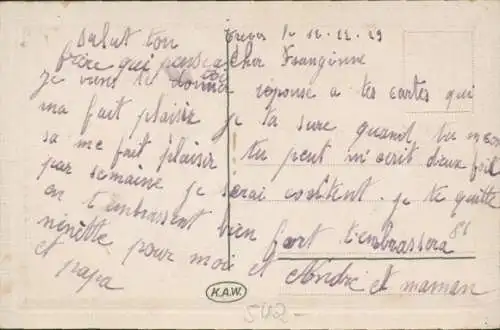 Treves le 16.12.29
Cher Franginne
Je viens te donner réponse a tes cartes qui
ma fait plaisir je ta sure quand tu
sa me fait plaisir tu peut m'ecrit deux fois
par semaine je serai contitent. je te quitte
en t'embrassent bien fort t'embrassera
ninètte pour moi et Andre et maman
et papa
salut ton
frère qui pense a toi
K.A.W.
502-